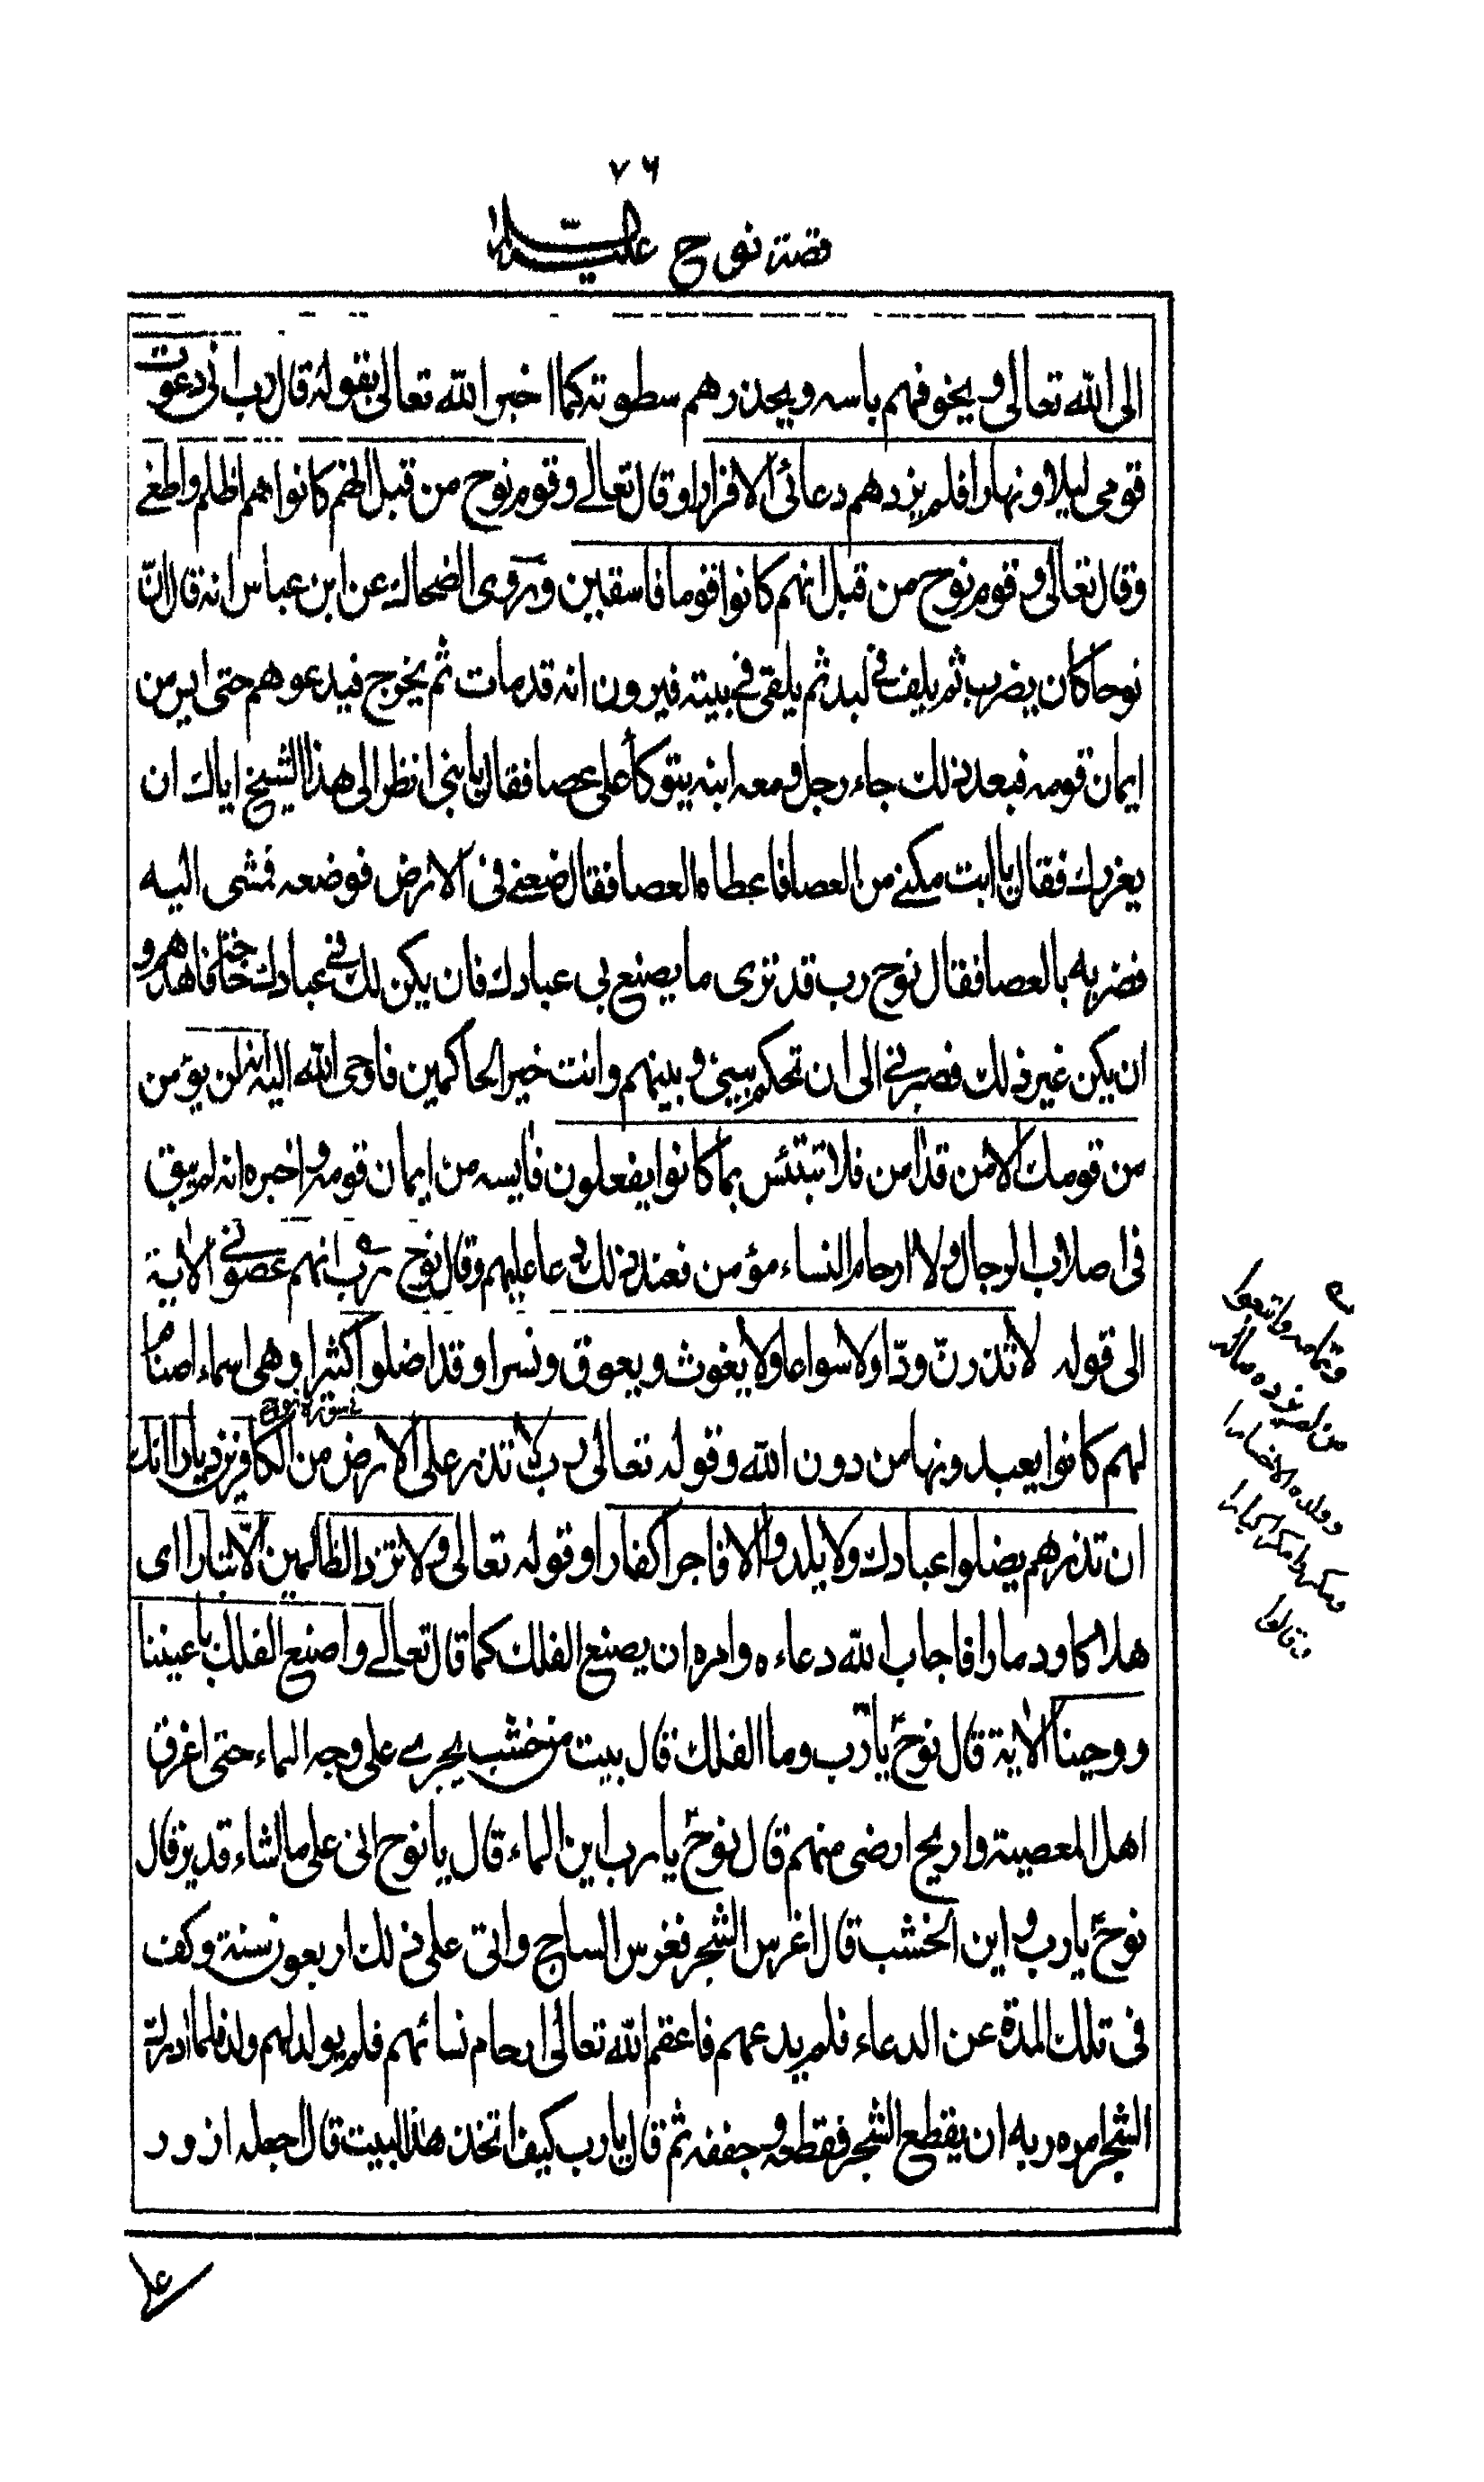 ٧٦
قصة نوح عليه السلام
الى الله تعالى ويخوفهم باسه ويحذرهم سطوته كما اخبر الله تعالى بقوله قال رب انى دعوت
قومى ليلا ونهارا فلم يزدهم دعائى الا فرارا وقال تعالے وقوم نوح من قبل انهم كانوا هم اظلم واطغے
وقال تعالى وقوم نوح من قبل انهم كانوا قوما فاسقين وروى الضحاك عن ابن عباس انه قال انّ
نوحا كان يضرب ثم يلف فے لبد ثم يلقى فے بيته فيرون انه قد مات ثم يخرج فيدعوهم حتى ايس من
ايمان قومه فبعد ذلك جاء رجل ومعه ابنه يتوكأ على عصا فقال يا بنى انظر الى هذا الشيخ اياك ان
يغرك فقال يا ابت مكنے من العصا فاعطاه العصا فقال ضعنے فى الارض فوضعه فمشى اليه
فضربه بالعصا فقال نوح رب قد ترى ما يصنع بى عبادك فان يكن لك فے عبادك حاجة فاهدهم و
ان يكن غير ذلك فصبرنے الى ان تحكم بينى وبينهم وانت خير الحاكمين فاوحى الله اليه انه لن يؤمن
من قومك الا من قد امن فلا تبتئس بما كانوا يفعلون فايسه من ايمان قومه واخبره انه لم يبق
فى اصلاب الرجال ولا ارحام النساء مؤمن فعند ذلك دعا عليهم وقال نوح رب انهم عصونے الاية
الى قوله لا تذرن ودّا ولا سواعا ولا يغوث ويعوق ونسرا وقد اضلوا كثيرا وهى اسماء اصنام
لهم كانوا يعبدونها من دون الله وقوله تعالى رب لا تذر على الارض من الكافرين ديارا انك
ان تذرهم يضلوا عبادك ولا يلدوا الا فاجرا كفارا وقوله تعالى ولا تزد الظالمين الّا تبارا اى
هلاكا ودمارا فاجاب الله دعاءه وامره ان يصنع الفلك كما قال تعالے واصنع الفلك باعيننا
ووحينا الاية قال نوح يا رب وما الفلك قال بيت من خشب يجرے على وجه الماء حتى اغرق
اهل المعصية واريح ارضى منهم قال نوح يا رب اين الماء قال يا نوح انى على ما اشاء قدير قال
نوح يا رب واين الخشب قال اغرس الشجر فغرس الساج واتى على ذلك اربعون سنة وكف
فى تلك المدة عن الدعاء فلم يدعهم فاعقم الله تعالى ارحام نسائهم فلم يولد لهم ولد فلما ادرك
الشجر امره ربه ان يقطع الشجر فقطعه وجففه ثم قال يا رب كيف اتخذ هذا البيت قال اجعله ازور
وتمامه واتبعوا
من لم يزده ماله
وولده الا خسارا
ومكروا مكرا كبارا
وقالوا